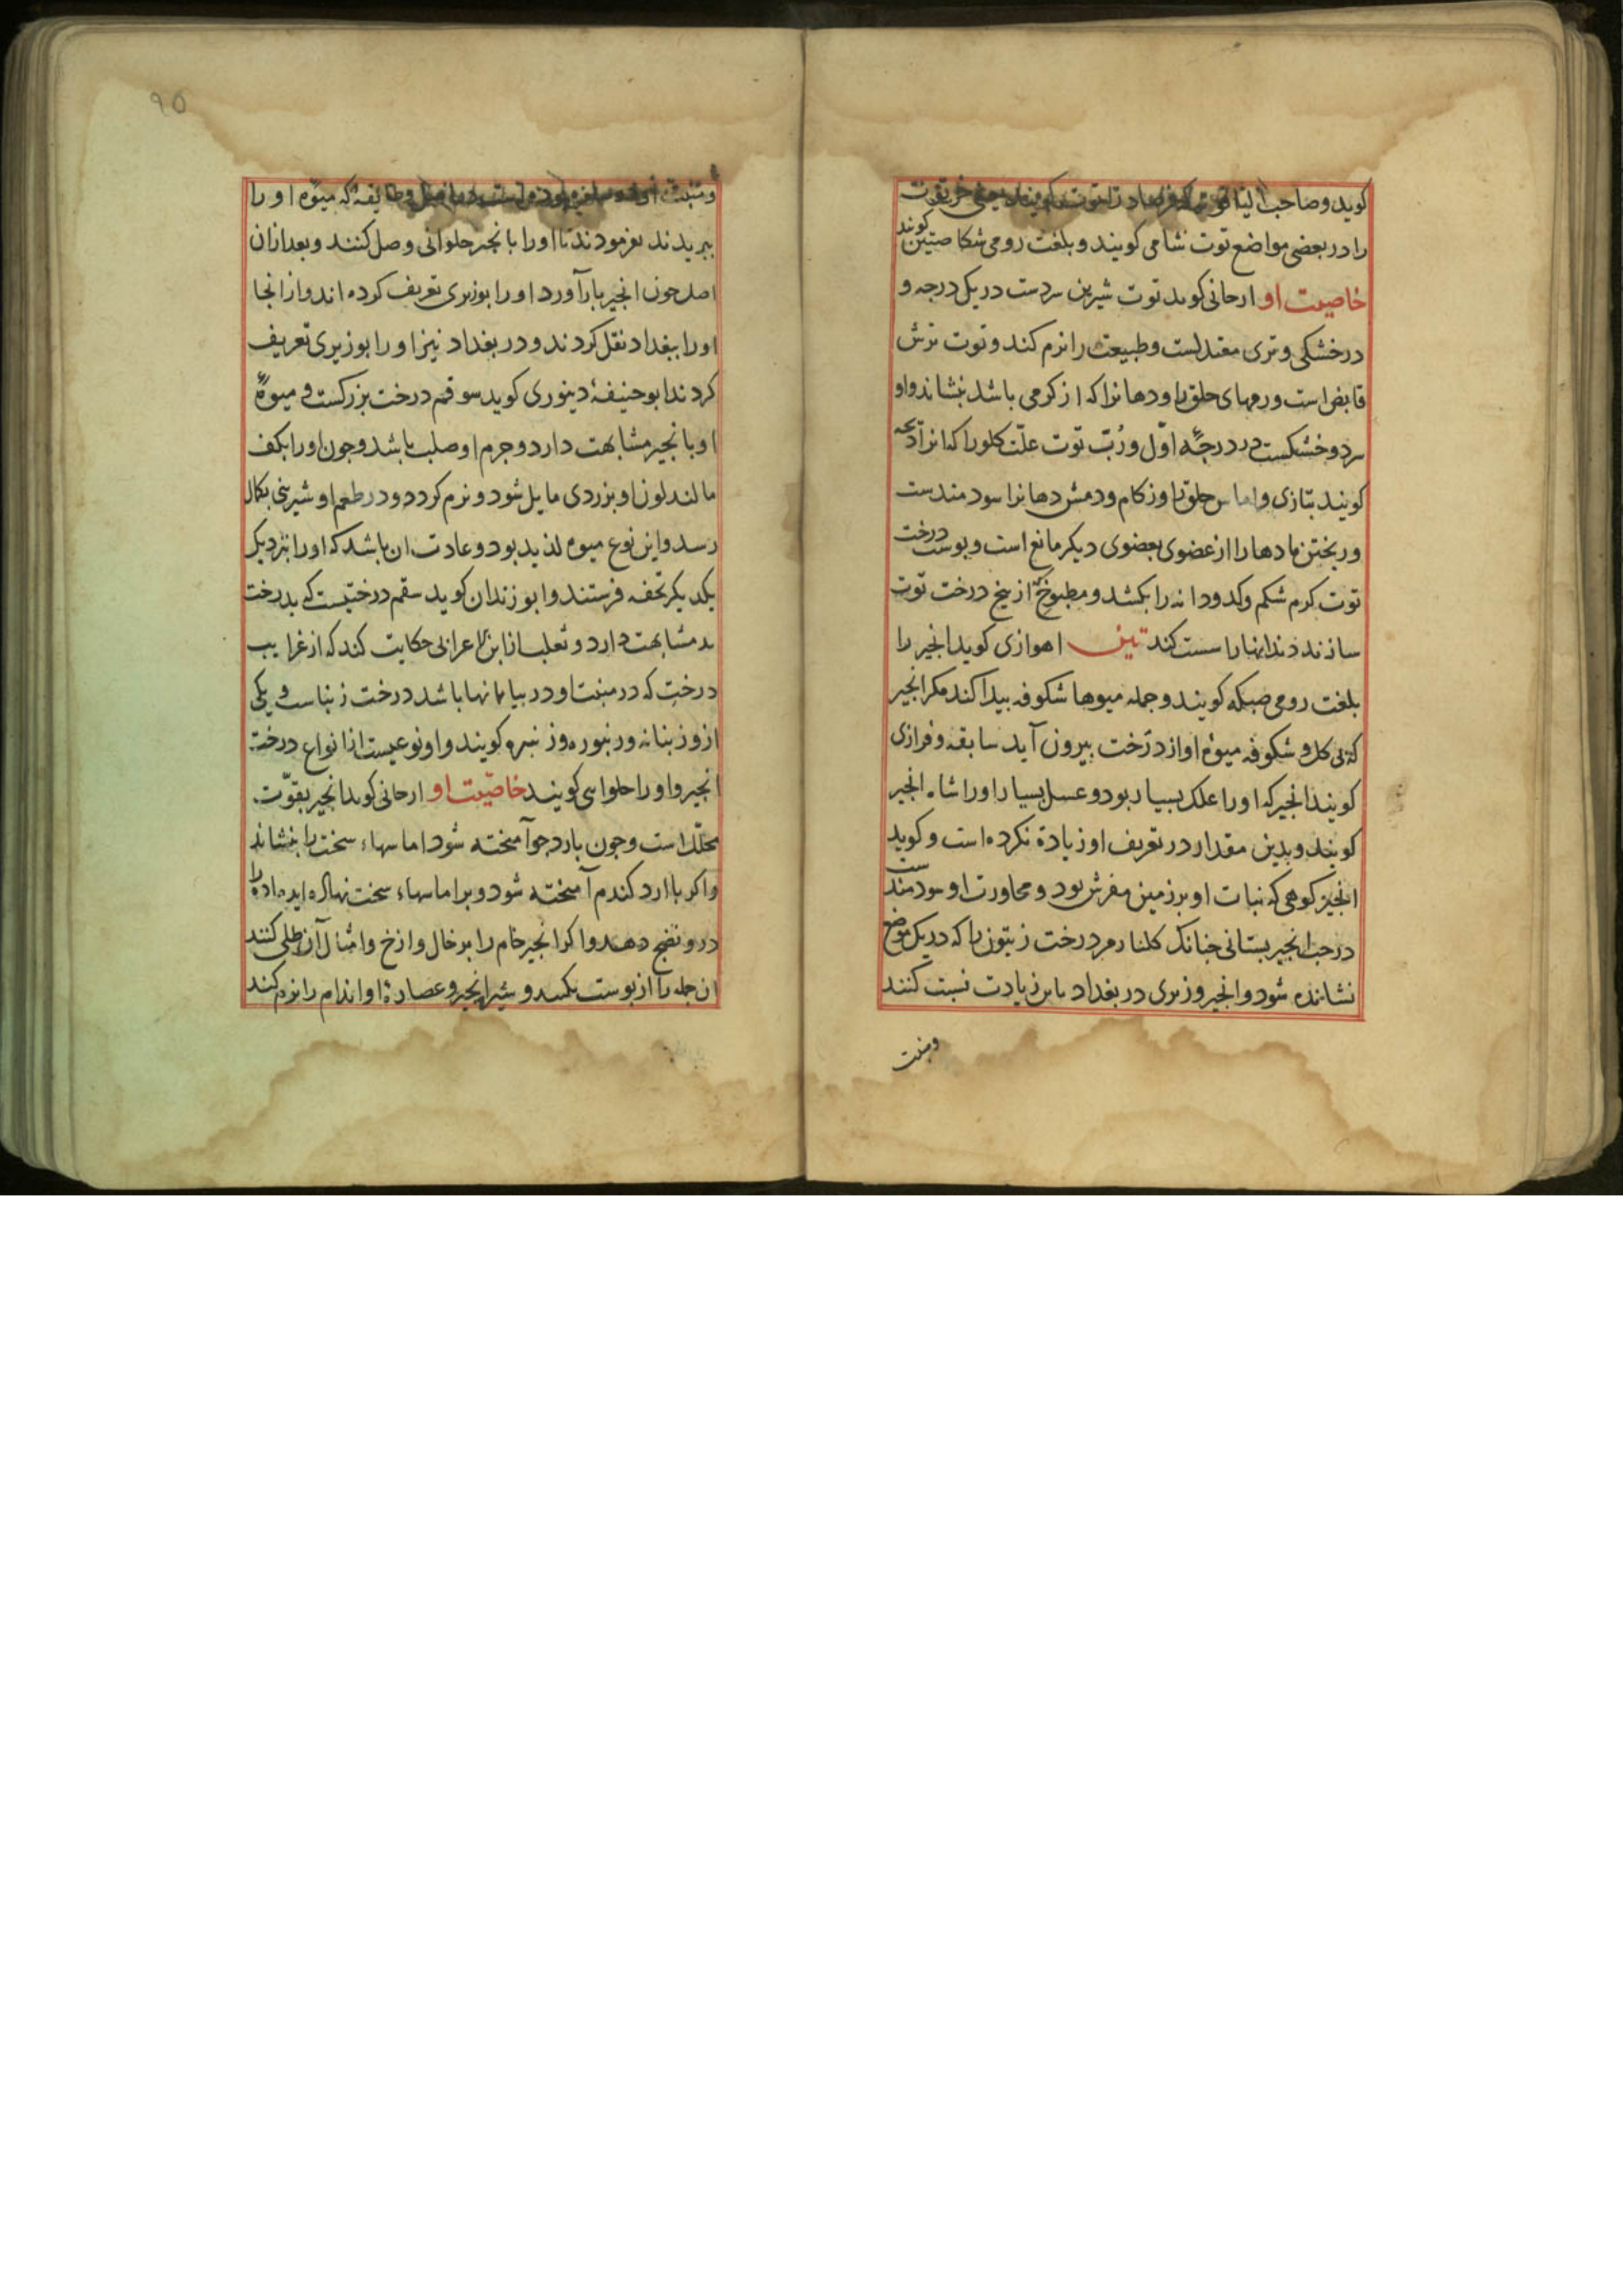 کوید و صاحب الیناقوت کوید فرصاد را توت کویند یعنی خرتوت
را در بعضی مواضع توت شامی کویند و بلغت رومی شکاصتین کویند
خاصیت او ارجانی کوید توت شیرین سردست در یک درجه و
در خشکی و تری معتدلست و طبیعت را نرم کند و توت ترش
قابض است ورمهای حلق را و دهانرا که از کرمی باشد بنشاند و او
سرد و خشکست در درجهٔ اوّل و رُبّ توت علّت کلورا که انرا ذبحه
کویند بتازی و اماس حلق را و زکام و دمش دهانرا سودمندست
و ریختن مادها را از عضوی بعضوی دیکر مانع است و بوست درخت
توت کرم شکم و کدودانه را بکشد و مطبوخی از بیخ درخت توت
سازند دندانها را سست کند تین اهوازی کوید انجیر را
بلغت رومی صبکه کویند و جمله میوها شکوفه بیدا کند مکر انجیر
که بی کل و شکوفه میوهٔ او از درخت بیرون آید سابقه و فرازی
کویند انجیر که او را علک بسیار بود و عسل بسیار او را شاه انجیر
کویند و بدین مقدار در تعریف او زیادة نکرده است و کوید
انجیر کوهی که نبات او بر زمین مفرش بود و مجاورت او سودمندست
درخت انجیر بستانی جنانک کلنار مر درخت زیتون را که در یک موضع
نشانده شود و انجیر وزیری در بغداد باین زیادت نسبت کنند
ومنبت
ومنبت او که میوه او را
ببریدند بفرمودند تا او را با نجیر حلوانی وصل کنند و بعد ازان
اصل جون انجیر بار آورد او را بوزیری تعریف کرده اند و از انجا
او را ببغداد نقل کردند و در بغداد نیز او را بوزیری تعریف
کردند ابو حنیفهٔ دینوری کوید سوقم درخت بزرکست و میوهٔ
او با نجیر مشابهت دارد و جرم او صلب باشد و جون او را بکف
مالند لون او بزردی مایل شود و نرم کردد و در طعم او شیرینی بکمال
رسد و این نوع میوه لذیذ بود و عادت ان باشد که او را بنزدیک
یکدیکر تحفه فرستند و ابو زندان کوید سقم درختیست که بدرخت
بد مشابهت دارد و ثعلب از ابن الاعرابی حکایت کند که از غرایب
درخت که در منبت او در بیابانها باشد درخت زنباست و یکی
از و زنبانه و زنبوره و زنبره کویند و او نوعیست از انواع درخت
انجیر و او را حلواسی کویند خاصّیت او ارجانی کوید انجیر بقوّت
محلّل است و جون با رد جو آمیخته شود اماسهاء سخت را بنشاند
و اکر با ارد کندم آمیخته شود و بر اماسهاء سخت نهاده اید ماده را
در و نضج دهد و اکر انجیر خام را بر خال و ازخ و امثال آن طلی کنند
ان جمله را از بوست بکند و شیر انجیر و عصارهٔ او اندام را نرم کند